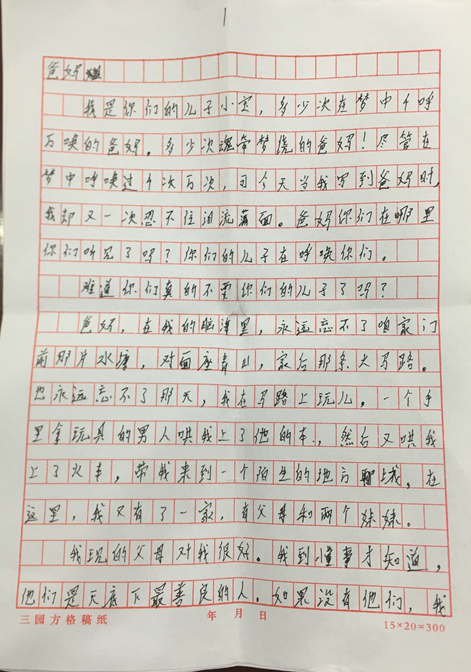 1
爸妈
我是你们的儿子小宝，多少次在梦中千呼
万唤的爸妈。多少次魂牵梦绕的爸妈！尽管在
梦中呼唤过千次万次，可今天当我写到爸妈时，
我却又一次忍不住泪流满面。爸妈你们在哪里
你们听见了吗？你们的儿子在呼唤你们。
难道你们真的不要你们的儿子了吗？
爸妈，在我的脑海里，永远忘不了咱家门
前那片水塘，对面座青山，家后那条大马路。
也永远忘不了那天，我在马路上玩儿。一个手
里拿玩具的男人哄我上了他的车，然后又哄我
上了火车，带我来到一个陌生的地方聊城，在
这里，我又有了一家，有父母和两个妹妹。
我现的父母对我很好。我到懂事才知道，
他们是天底下最善良的人。如果没有他们，我
三园方格稿纸 年 月 日 15×20=300